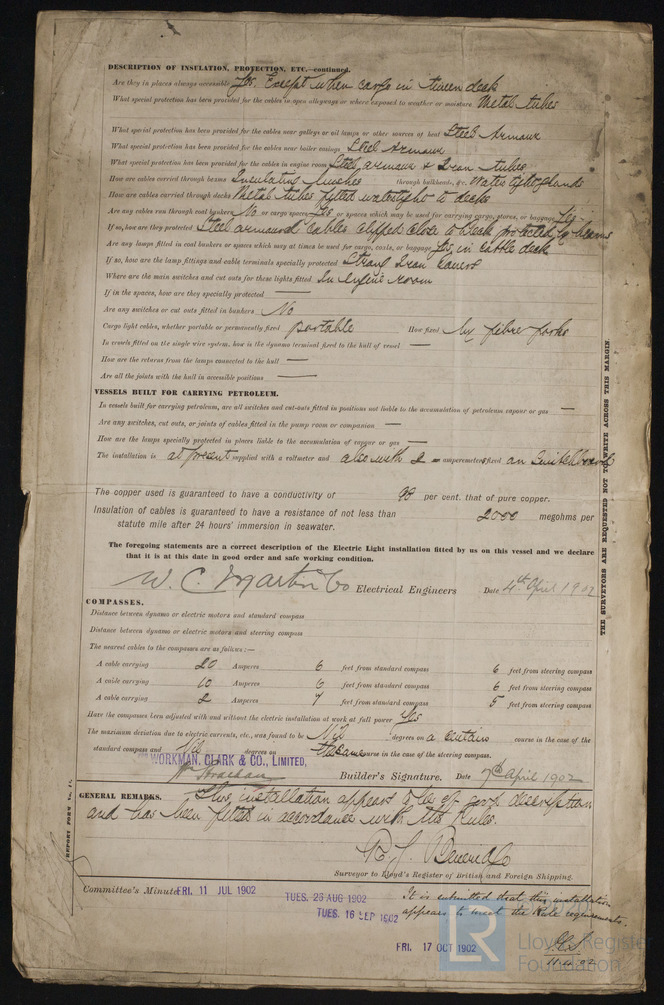 DESCRIPTION OF INSULATION, PROTECTION, ETC.—continued.
Are they in places always accessible Yes. Except when cargo in tween deck
What special protection has been provided for the cables in open alleyways or where exposed to weather or moisture Metal tubes
What special protection has been provided for the cables near galleys or oil lamps or other sources of heat Steel Armour
What special protection has been provided for the cables near boiler casings Steel Armour
What special protection has been provided for the cables in engine room Steel armour & Iron tubes
How are cables carried through beams Insulating bushes through bulkheads, &c. Watertight glands
How are cables carried through decks Metal tubes fitted watertight to decks
Are any cables run through coal bunkers No or cargo spaces Yes or spaces which may be used for carrying cargo, stores, or baggage Yes
If so, how are they protected Steel armoured Cables clipped close to Deck protected by beams
Are any lamps fitted in coal bunkers or spaces which may at times be used for cargo, coals, or baggage Yes, in cattle deck
If so, how are the lamp fittings and cable terminals specially protected Strong Iron Covers
Where are the main switches and cut outs for these lights fitted In Engine room
If in the spaces, how are they specially protected —
Are any switches or cut outs fitted in bunkers No
Cargo light cables, whether portable or permanently fixed portable How fixed by fibre forks
In vessels fitted on the single wire system, how is the dynamo terminal fixed to the hull of vessel —
How are the returns from the lamps connected to the hull —
Are all the joints with the hull in accessible positions —
VESSELS BUILT FOR CARRYING PETROLEUM.
In vessels built for carrying petroleum, are all switches and cut-outs fitted in positions not liable to the accumulation of petroleum vapour or gas —
Are any switches, cut outs, or joints of cables fitted in the pump room or companion —
How are the lamps specially protected in places liable to the accumulation of vapour or gas —
The installation is at present supplied with a voltmeter and also with 2 — amperemeters fixed on Switchboard
The copper used is guaranteed to have a conductivity of 98 per cent. that of pure copper.
Insulation of cables is guaranteed to have a resistance of not less than 2000 megohms per
statute mile after 24 hours' immersion in seawater.
The foregoing statements are a correct description of the Electric Light installation fitted by us on this vessel and we declare
that it is at this date in good order and safe working condition.
W. C. Martin & Co Electrical Engineers Date 4th April 1902
COMPASSES.
Distance between dynamo or electric motors and standard compass
Distance between dynamo or electric motors and steering compass
The nearest cables to the compasses are as follows:—
A cable carrying 20 Amperes 6 feet from standard compass 6 feet from steering compass
A cable carrying 10 Amperes 6 feet from standard compass 6 feet from steering compass
A cable carrying 2 Amperes 7 feet from standard compass 5 feet from steering compass
Have the compasses been adjusted with and without the electric installation at work at full power Yes
The maximum deviation due to electric currents, etc., was found to be Nil degrees on a certain course in the case of the
standard compass and Nil degrees on the same course in the case of the steering compass.
WORKMAN, CLARK & CO., LIMITED,
Builder's Signature. Date 7th April 1902
GENERAL REMARKS. This installation appears to be of good description
and has been fitted in accordance with the Rules.
Surveyor to Lloyd's Register of British and Foreign Shipping.
Committee's Minute FRI. 11 JUL 1902
TUES. 26 AUG 1902
TUES. 16 SEP 1902
FRI. 17 OCT 1902
It is submitted that this installation
appears to meet the Rule requirements.
LR
Lloyd's Register
Foundation
THE SURVEYORS ARE REQUESTED NOT TO WRITE ACROSS THIS MARGIN.